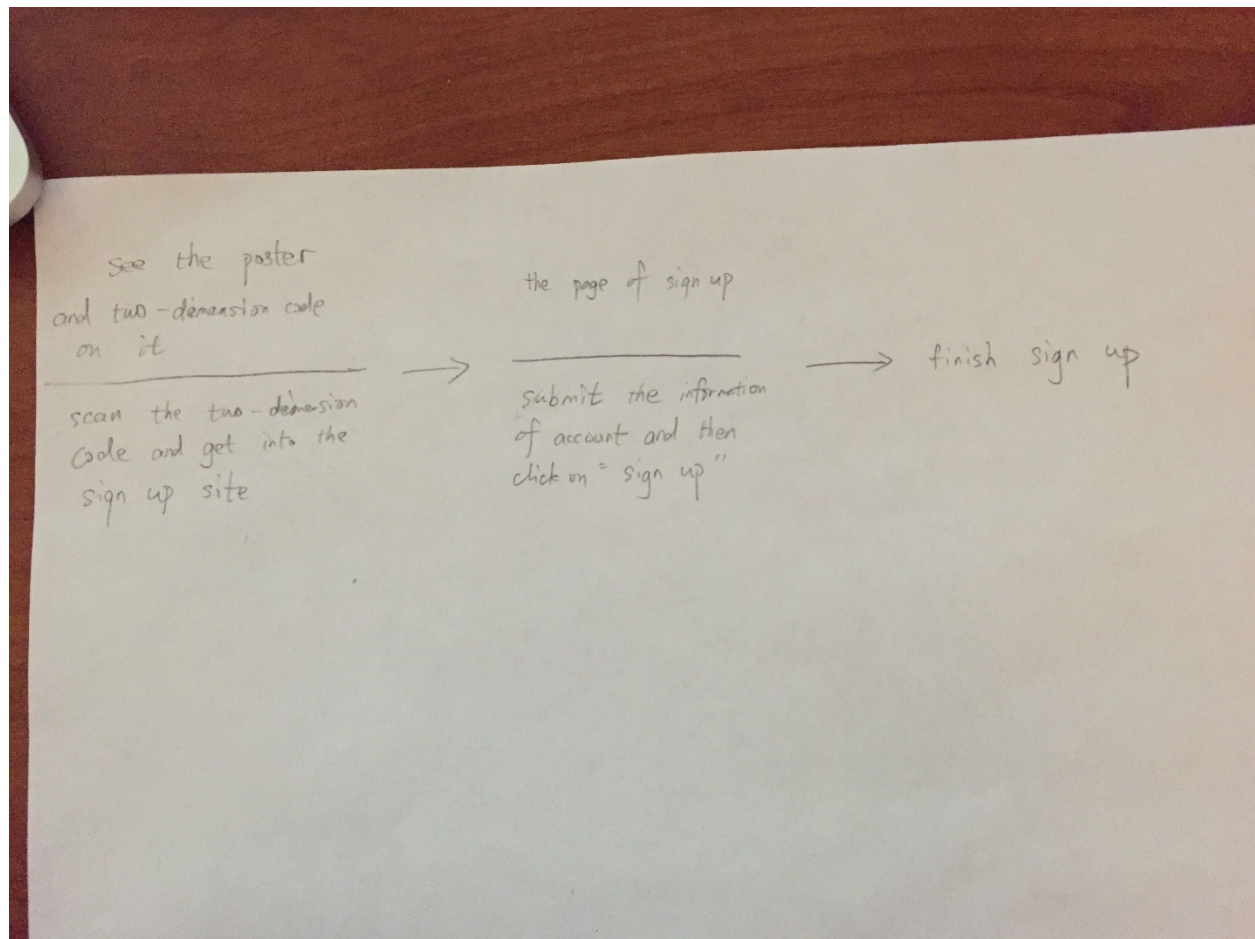 see the poster
and two-demension code
on it
scan the two-demension
code and get into the
sign up site
the page of sign up
submit the information
of account and then
click on "sign up"
finish sign up